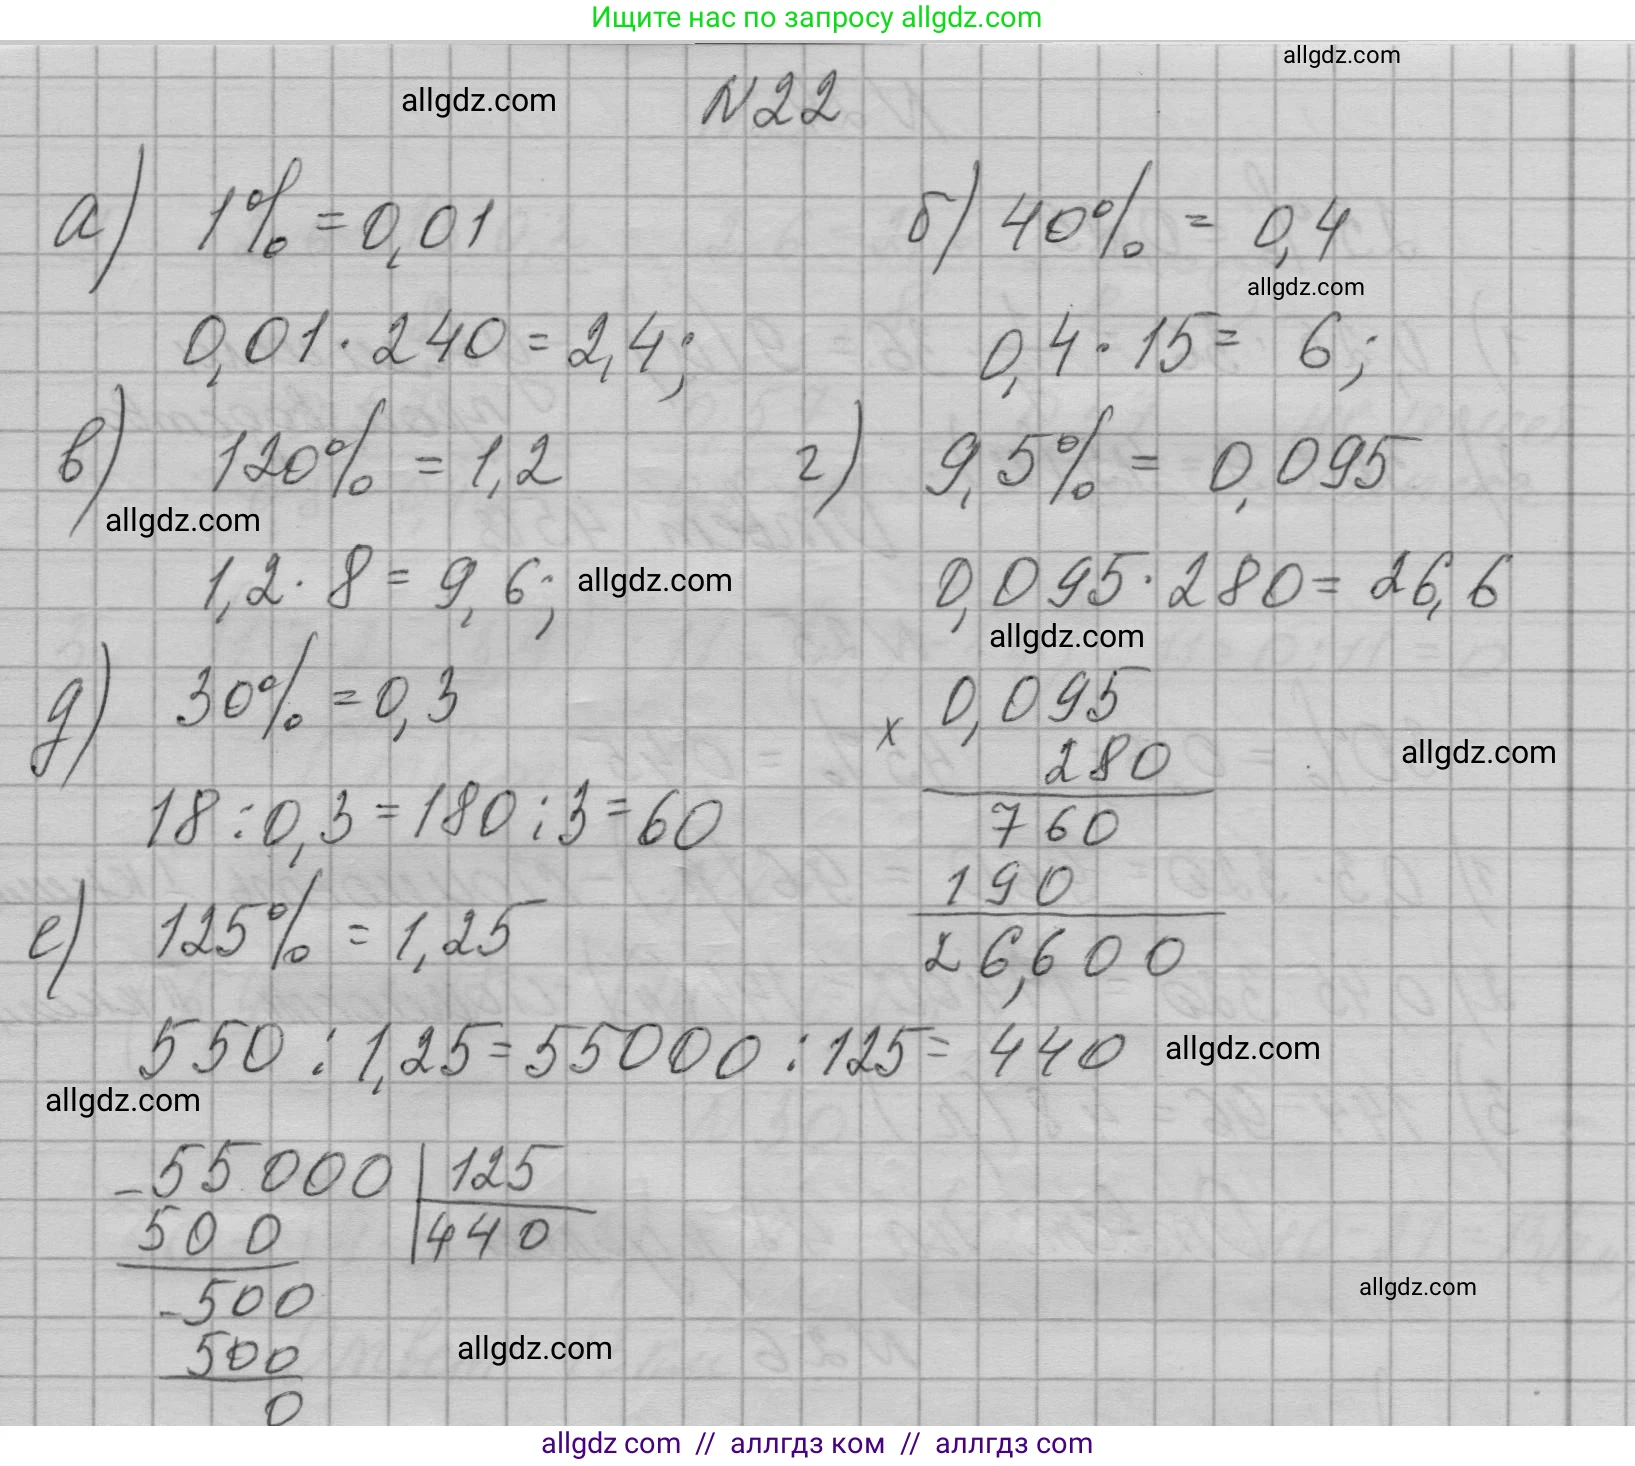 Ищите нас по запросу allgdz.com
allgdz.com
allgdz.com
N22
а) 1% = 0,01
б) 40% = 0,4
allgdz.com
0,01 · 240 = 2,4;
0,4 · 15 = 6;
в) 120% = 1,2
г) 9,5% = 0,095
allgdz.com
1,2 · 8 = 9,6;
allgdz.com
0,095 · 280 = 26,6
allgdz.com
д) 30% = 0,3
× 0,095
280
allgdz.com
18 : 0,3 = 180 : 3 = 60
760
190
е) 125% = 1,25
26,600
550 : 1,25 = 55000 : 125 = 440
allgdz.com
allgdz.com
- 55000 | 125
500 | 440
- 500
allgdz.com
500
allgdz.com
0
allgdz com // аллгдз ком // аллгдз com